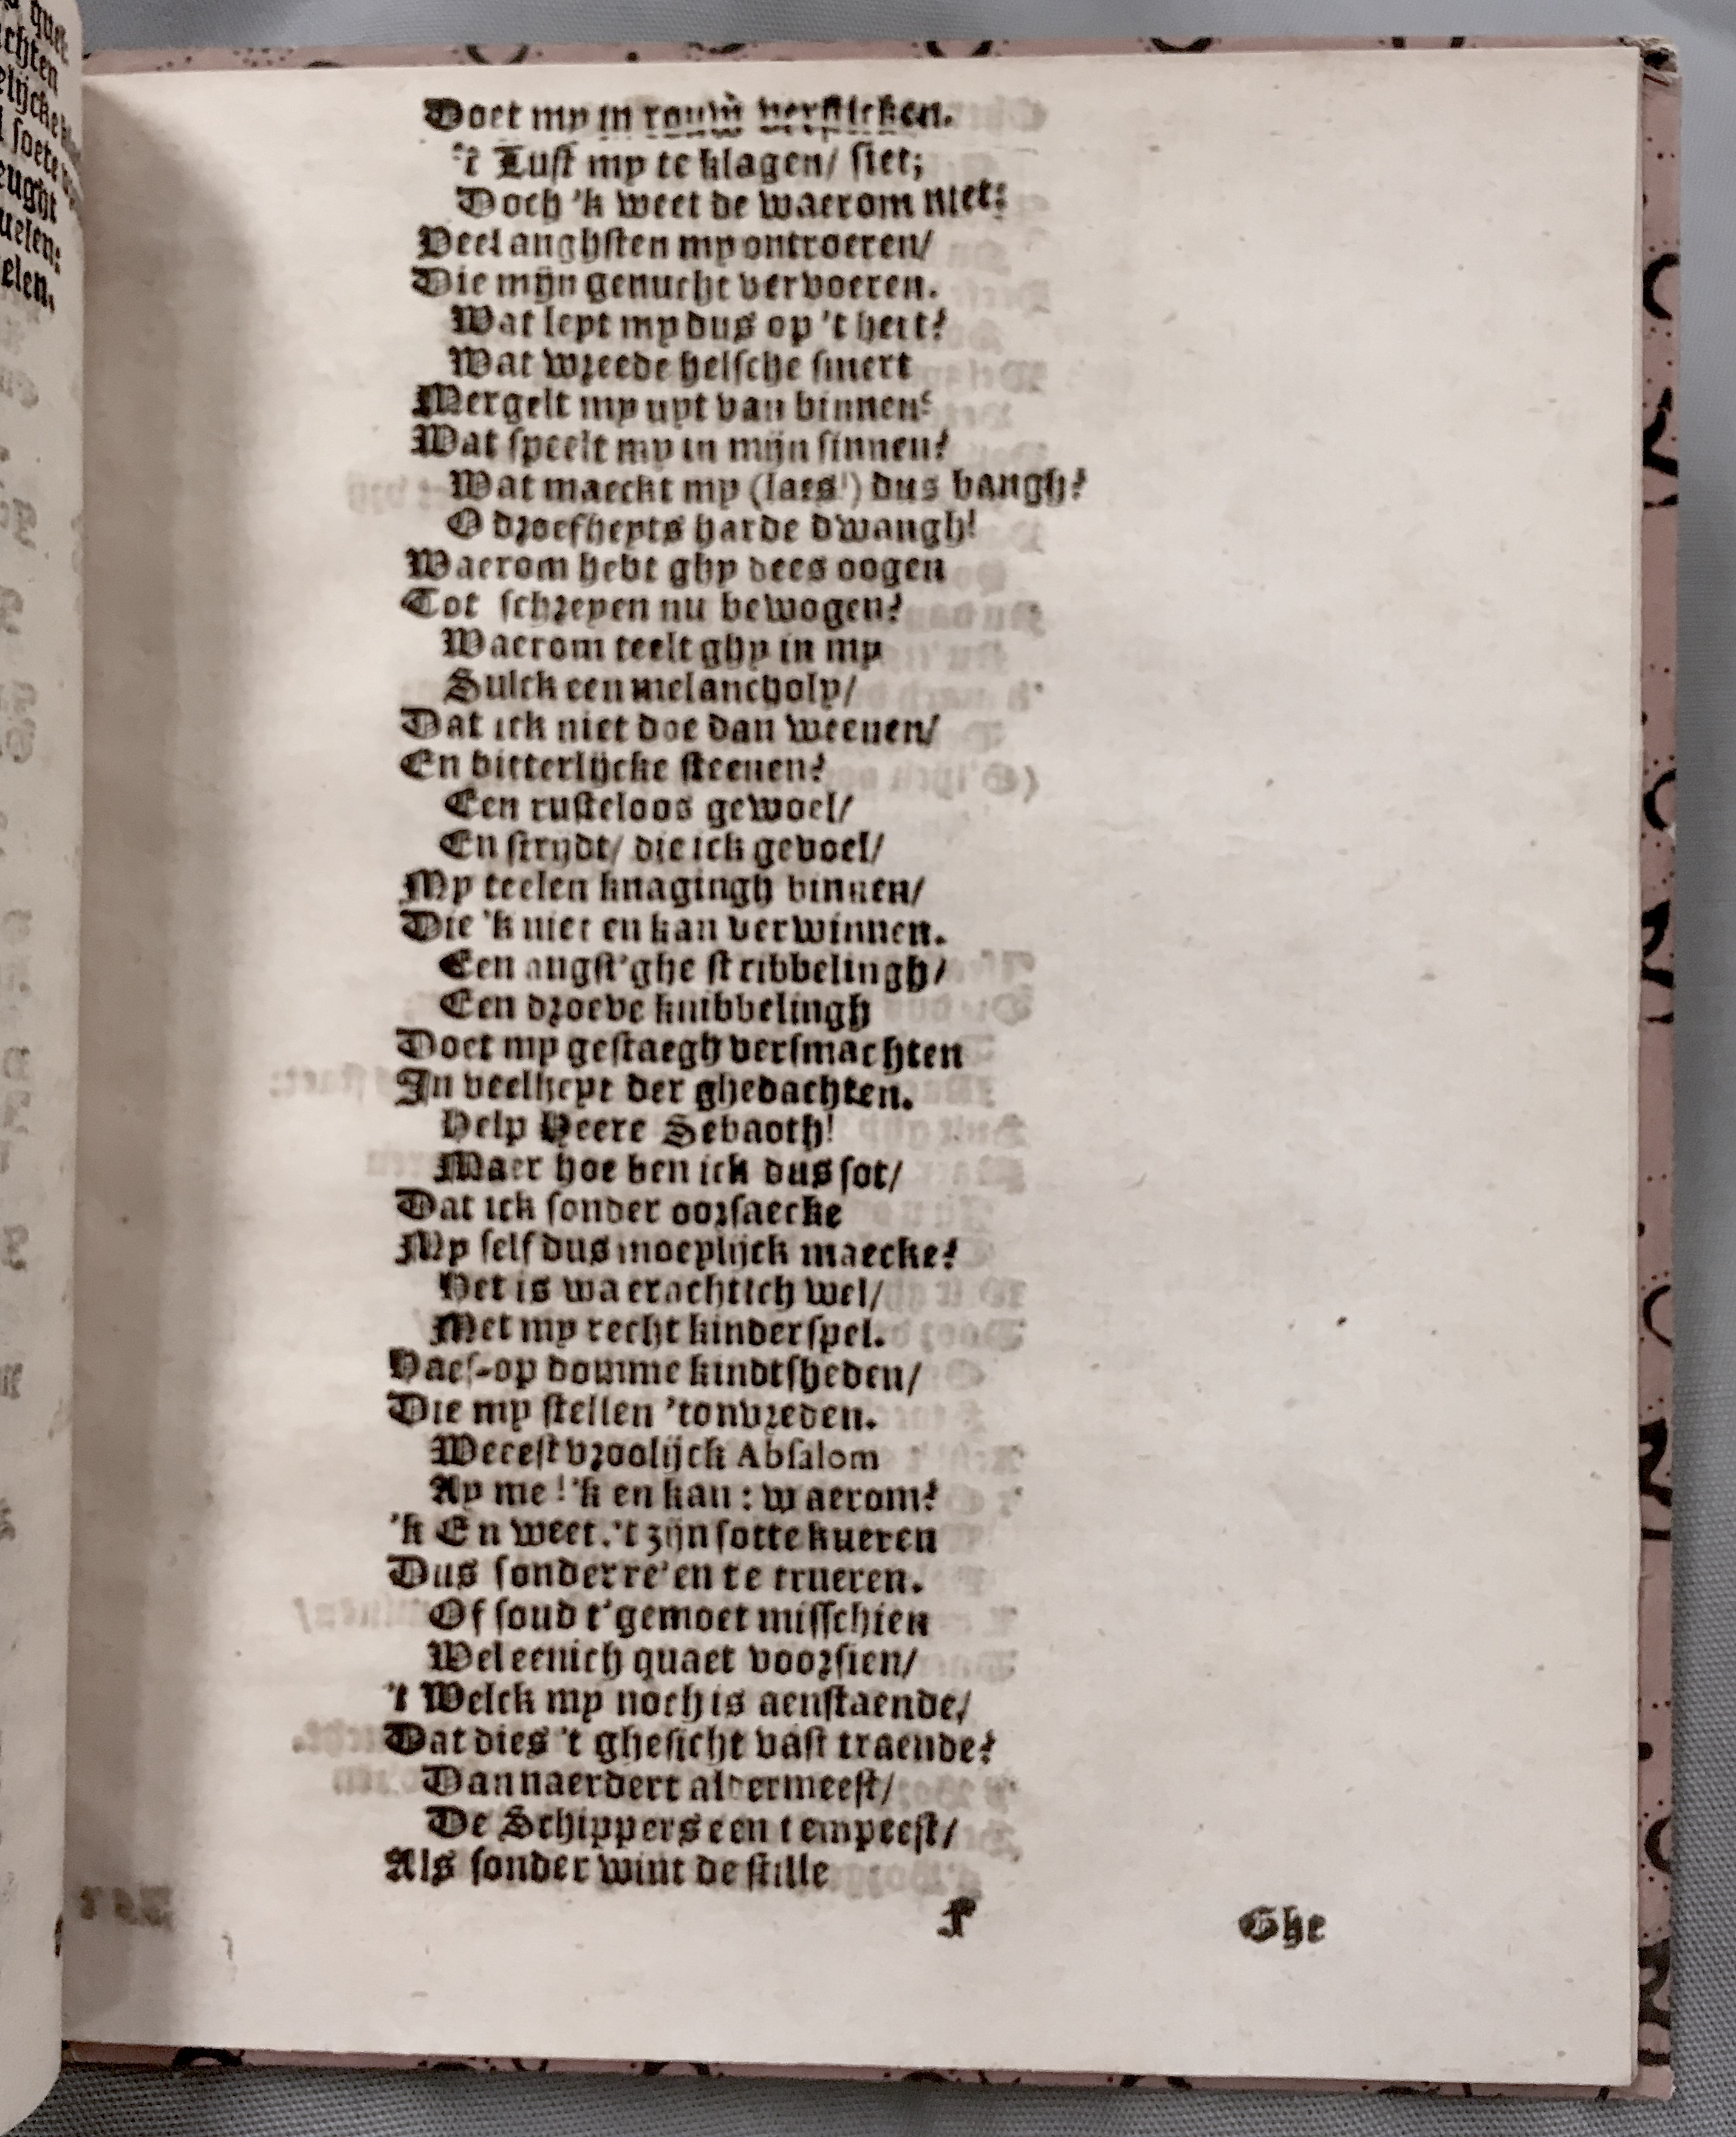 Doet my in rouw verstícken.
't Lust my te klagen/ siet;
Doch 'k weet de waerom niet:
Veel anghsten my ontroeren/
Die mijn genucht vervoeren.
Wat leyt my dus op 't hert?
Wat wreede helsche smert
Mergelt my uyt van binnen?
Wat speelt my in mijn sinnen?
Wat maeckt my (laes!) dus bangh?
O droefheyts harde dwangh!
Waerom hebt ghy dees oogen
Tot schreyen nu bewogen?
Waerom teelt ghy in my
Sulck een melancholy/
Dat ick niet doe dan weenen/
En bitterlijcke steenen?
Een rusteloos gewoel/
En strijdt/ die ick gevoel/
My teelen knagingh binnen/
Die 'k niet en kan verwinnen.
Een angst'ghe stribbelingh/
Een droeve knibbelingh
Doet my gestaegh versmachten
In veelheyt der ghedachten.
Help Heere Sebaoth!
Maer hoe ben ick dus sot/
Dat ick sonder oorsaecke
My self dus moeylijck maecke?
Het is waerachtich wel/
Met my recht kinderspel.
Haes-op domme kindtsheden/
Die my stellen 'tonvreden.
Weest vroolijck Absalom
Ay me! 'k en kan: waerom?
'k En weet. 't zijn sotte kueren
Dus sonder re'en te trueren.
Of soud t'gemoet misschien
Wel eenich quaet voorsien/
't Welck my noch is aenstaende/
Dat dies 't ghesicht vast traende?
Dan naerdert aldermeest/
De Schippers een tempeest/
Als sonder wint de stille
F Ghe